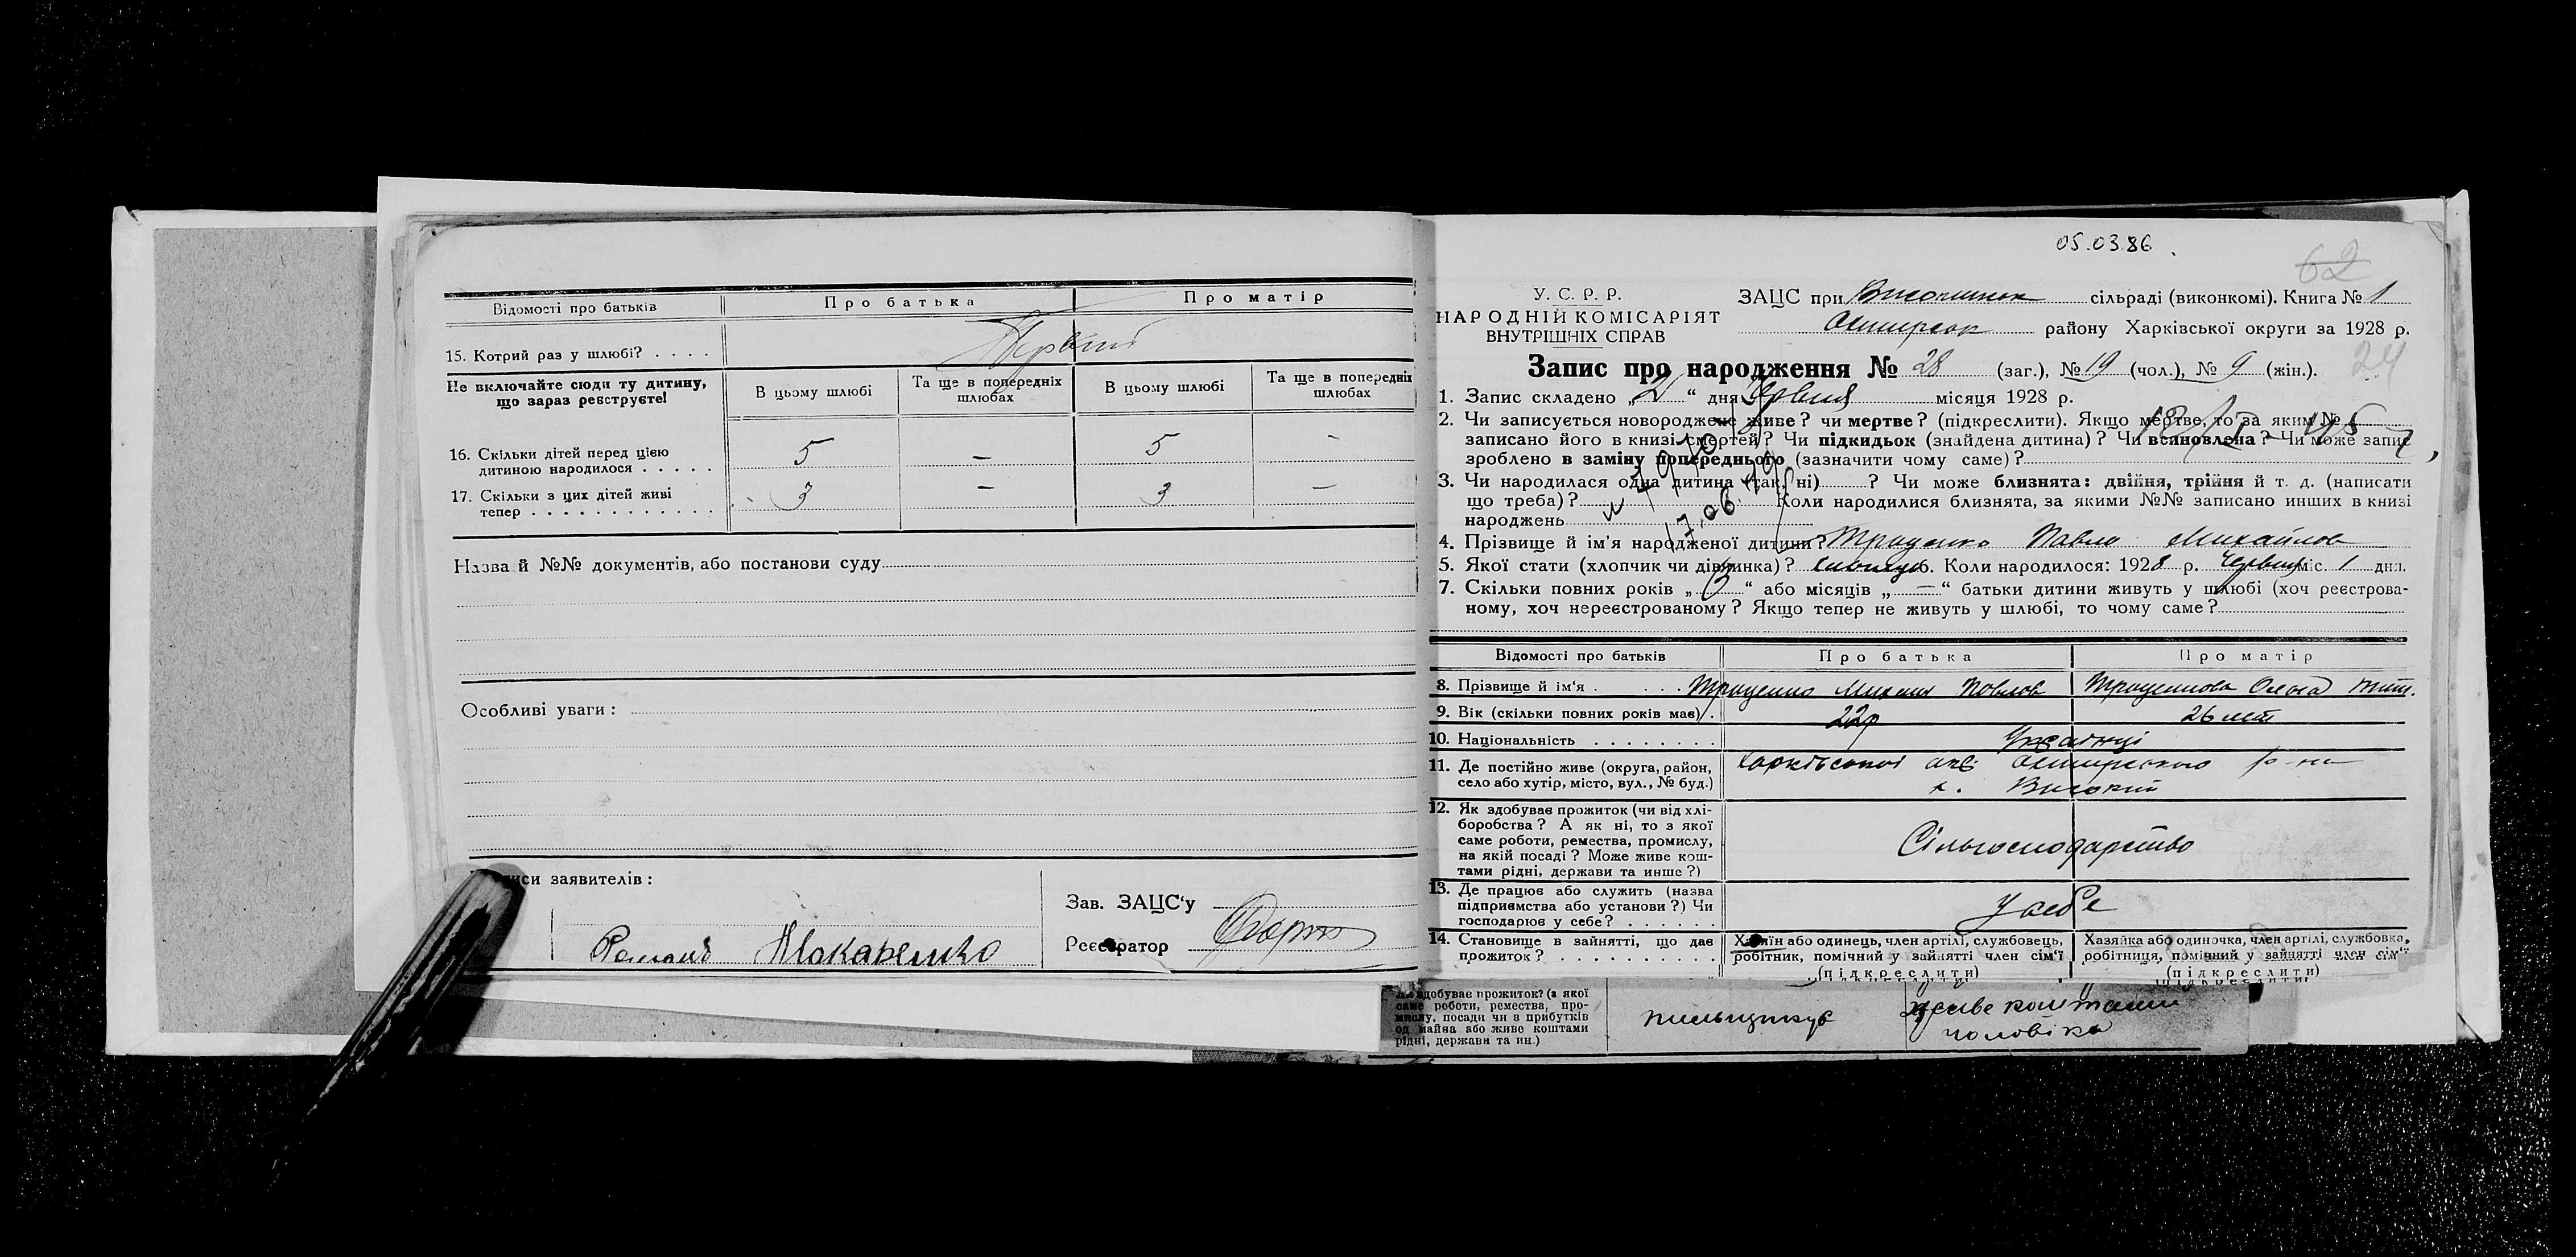 Відомості про батьків
Про батька
Про матір
15. Котрий раз у шлюбі? . . . .
Первий
Не включайте сюди ту дитину,
що зараз реєструєте!
В цьому шлюбі
Та ще в попередніх
шлюбах
В цьому шлюбі
Та ще в попередніх
шлюбах
16. Скільки дітей перед цією
дитиною народилося . . . . .
5 — 5 -
17. Скільки з цих дітей живі
тепер . . . . . . . . . . . .
3 — 3 —
Назва й №№ документів, або постанови суду
Особливі уваги:
заявителів:
Макаренко
Зав. ЗАЦС‘у
Реєстратор
05.03.86
62
У. С. Р. Р.
НАРОДНІЙ КОМІСАРІЯТ
ВНУТРІШНІХ СПРАВ
ЗАЦС при сільраді (виконкомі). Книга № 1
району Харківської округи за 1928 р.
24
Запис про народження № 28 (заг.), № 19 (чол.), № 9 (жін.).
1. Запис складено „2“ дня Червня місяця 1928 р.
2. Чи записується новороджене живе? чи мертве? (підкреслити). Якщо мертве, то за яким №
записано його в книзі смертей? Чи підкидьок (знайдена дитина)? Чи встановлена? Чи може запис
зроблено в заміну попереднього (зазначити чому саме)?
3. Чи народилася одна дитина (так, ні) ? Чи може близнята: двійня, трійня й т. д. (написати
що треба)? Коли народилися близнята, за якими №№ записано инших в книзі
народжень
4. Прізвище й ім‘я народженої дитини? Троценко Павло Михайлов
5. Якої стати (хлопчик чи дівчинка)? 6. Коли народилося: 1928 р. Червня міс. 1 дня.
7. Скільки повних років „ “ або місяців „—“ батьки дитини живуть у шлюбі (хоч реєстрова-
ному, хоч нереєстрованому? Якщо тепер не живуть у шлюбі, то чому саме?
Відомості про батьків
Про батька
Про матір
8. Прізвище й ім‘я . . . . Троценко Михаил Павлов
Троценкова Ольга
9. Вік (скільки повних років має) . 22р
26 лет
10. Національність . . . . . . . . Українці
11. Де постійно живе (округа, район,
село або хутір, місто, вул., № буд.)
Харківської окр. р-на
х. Високий
12. Як здобуває прожиток (чи від хлі-
боробства? А як ні, то з якої
саме роботи, ремества, промислу,
на якій посаді? Може живе кош-
тами рідні, держави та инше?)
Сільгосподарство
13. Де працює або служить (назва
підприємства або установи?) Чи
господарює у себе? . . . . . .
У себе
14. Становище в зайнятті, що дає
прожиток? . . . . . . . . . .
Хазяїн або одинець, член артілі, службовець,
робітник, помічний у зайнятті член сім‘ї
(підкреслити)
Хазяйка або одиночка, член артілі, службовка,
робітниця, помічний у зайнятті член сім‘ї
(підкреслити)
здобуває прожиток? (з якої
саме роботи, ремества, про-
мислу, посади чи з прибутків
од майна або живе коштами
рідні, держави та ин.)
живе коштами
чоловіка